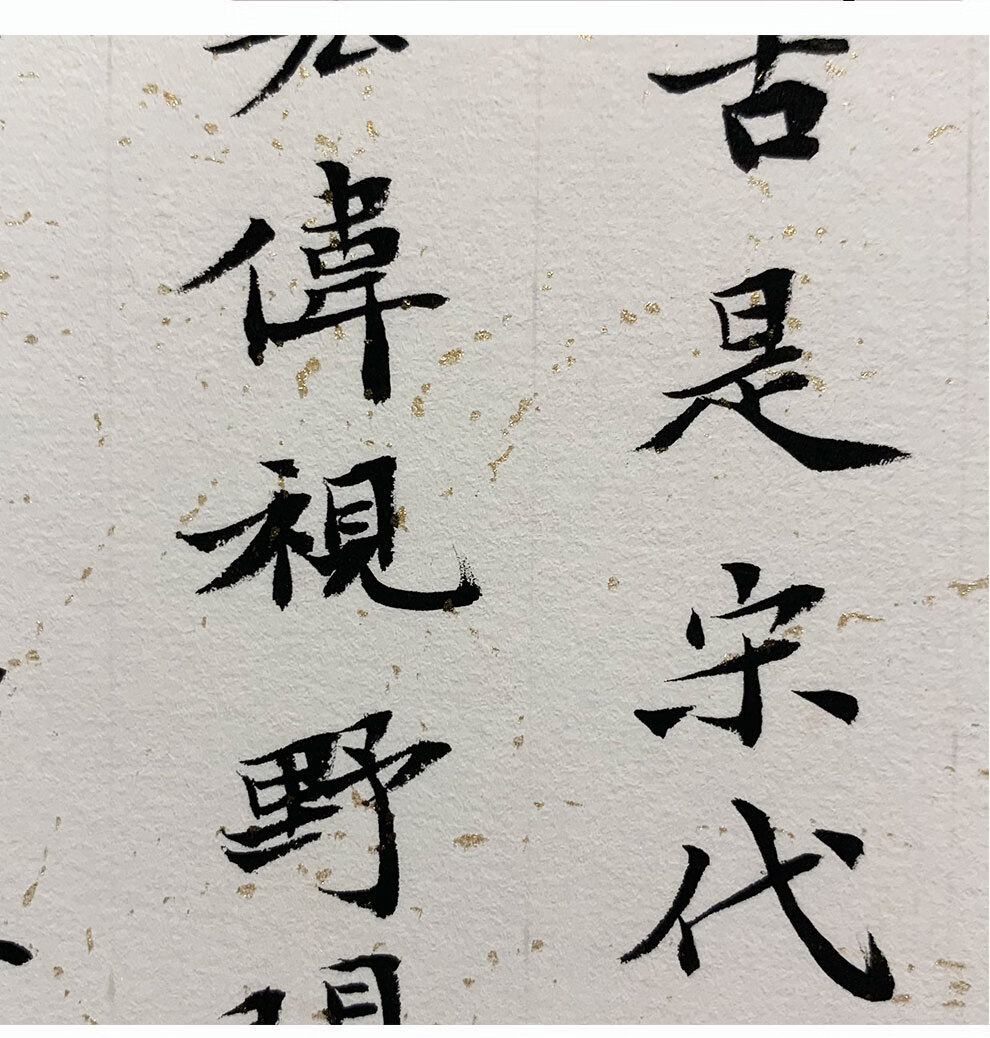 古是宋代
宏偉視野